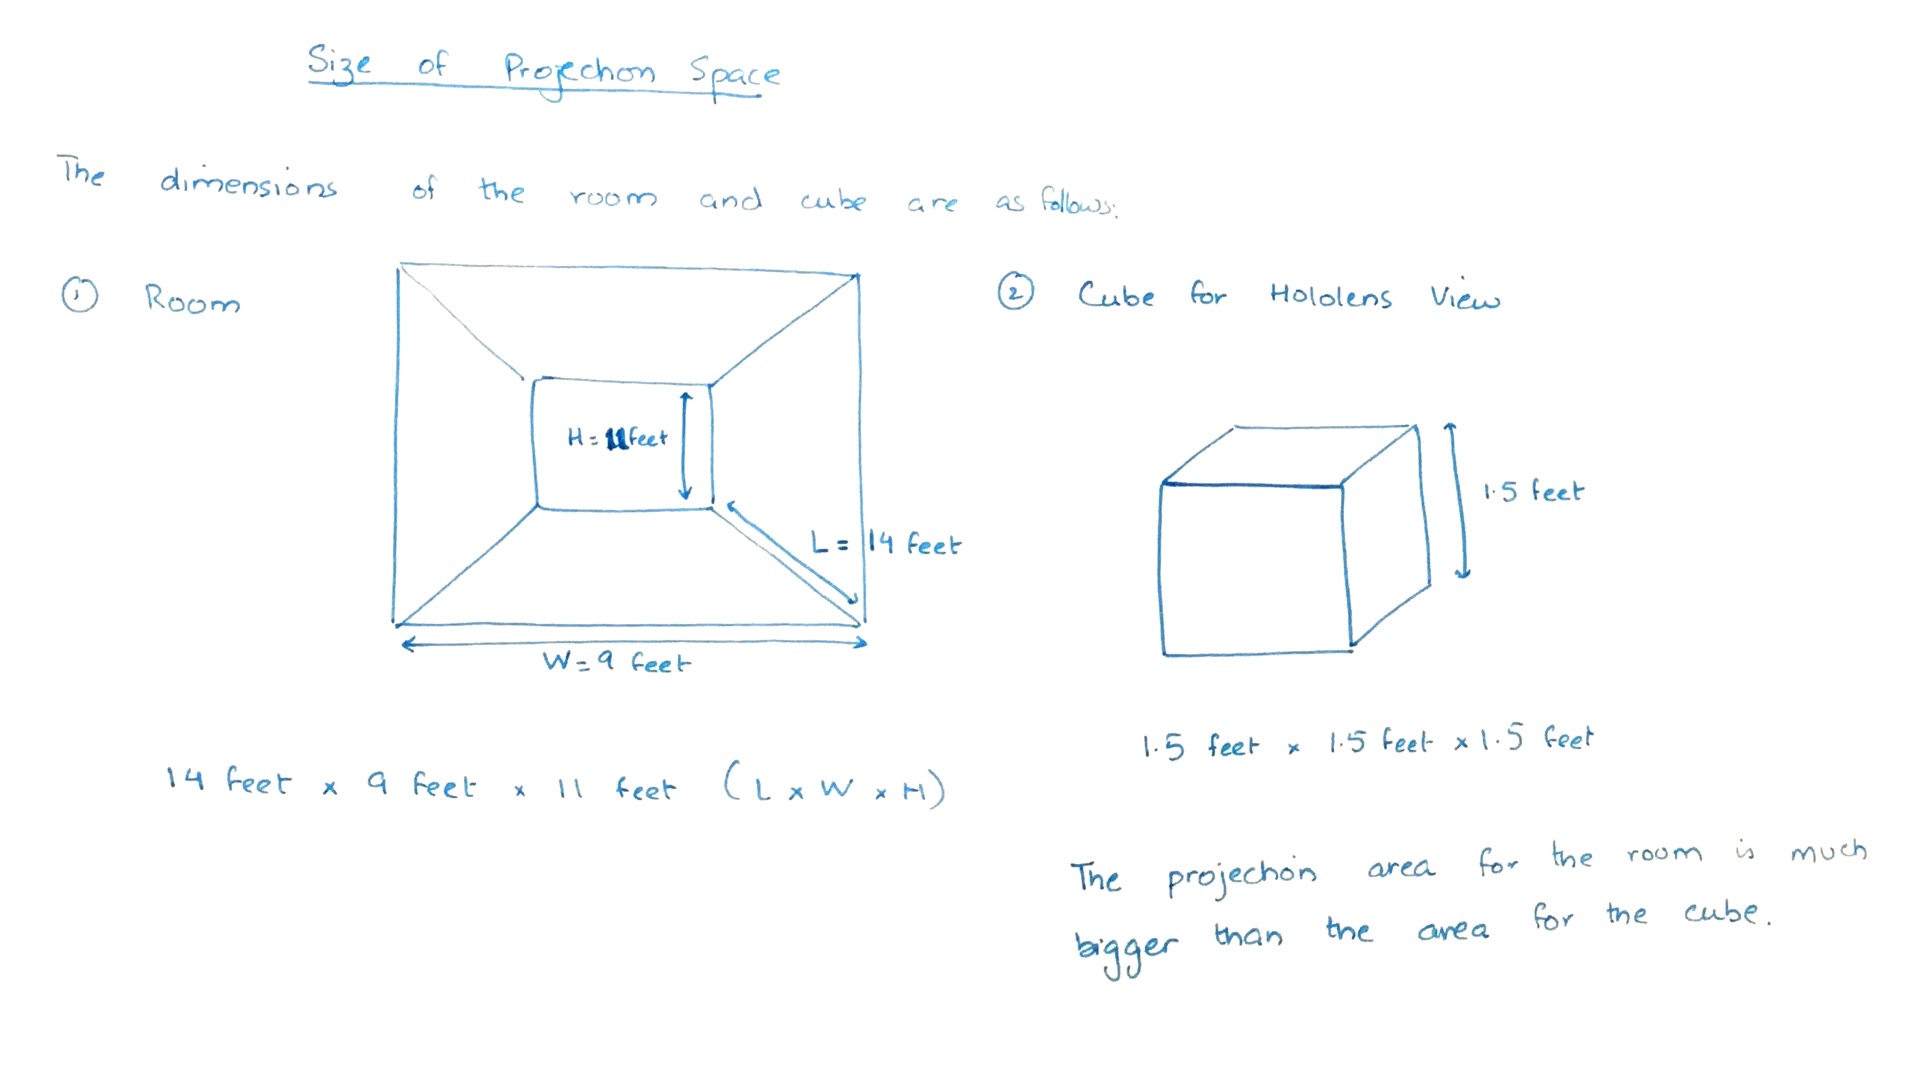 Size of Projection Space
The dimensions of the room and cube are as follows:
① Room
H = 11 feet
L = 14 feet
W = 9 feet
14 feet x 9 feet x 11 feet (L x W x H)
② Cube for Hololens View
1.5 feet
1.5 feet x 1.5 feet x 1.5 feet
The projection area for the room is much
bigger than the area for the cube.